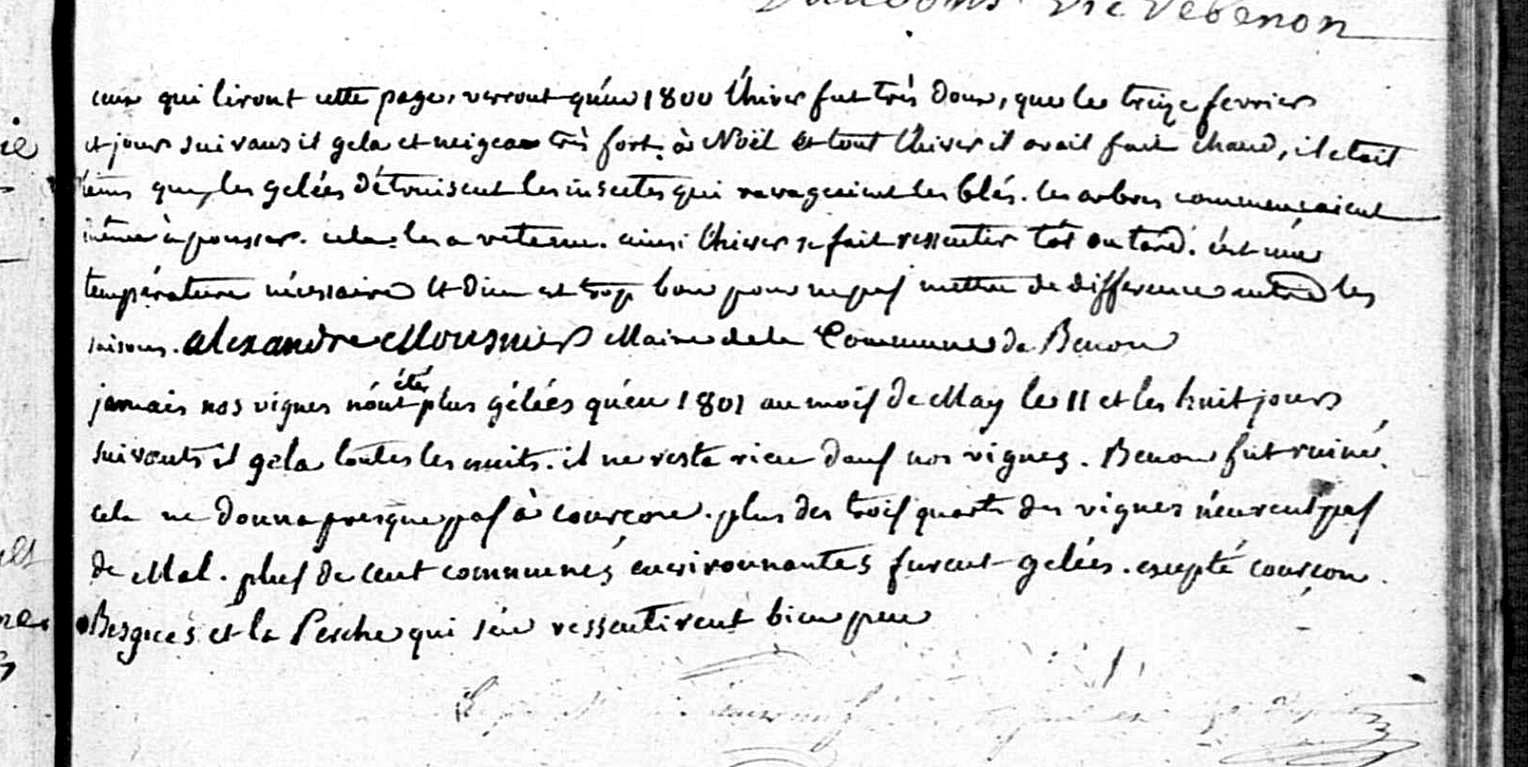 vic de benon
ceux qui liront cette page, verront qu'en 1800 l'hiver fut très doux, que le treize fevrier
et jours suivans il gela et neigea très fort. à Noël et tout l'hiver il avait fait chaud, il etait
tems que les gelées détruisent les insectes qui ravageaient les blés. les arbres commençaient
même à pousser. cela les a retenu. ainsi l'hiver se fait ressentir tôt ou tard. c'est une
température nécessaire et Dieu est trop bon pour ne pas mettre de difference entre les
saisons. alexandre Mousnier Maire de la Commune de Benon
jamais nos vignes n'ont été plus gélées qu'en 1801 au mois de May le 11 et les huit jours
suivants il gela toutes les nuits. il ne resta rien dans nos vignes. Benon fut ruiné.
cela ne donna presque pas à courçon. plus des trois quarts des vignes n'eurent pas
de Mal. plus de cent communes environnantes furent gelées. excepté courçon.
Bergues et la Perche qui s'en ressentirent bien peu